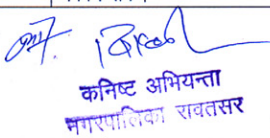 कनिष्ट अभियन्ता
नगरपालिका रावतसर